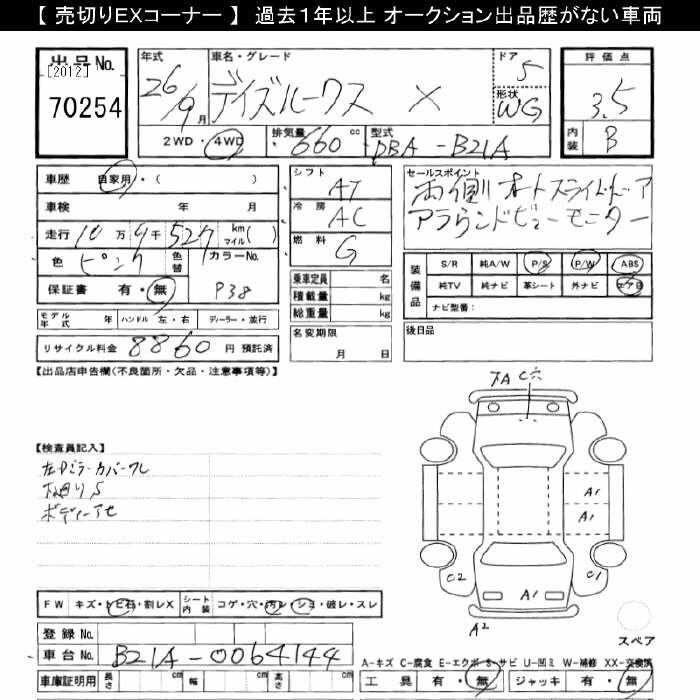 【 売切りEXコーナー 】 過去1年以上 オークション出品歴がない車両
出品No.
[2012]
70254
年式
26/9月
車名・グレード
デイズルークス X
ドア
5
形状
WG
評価点
3.5
内装
B
2WD・4WD
排気量
660cc
型式
DBA-B21A
車歴
自家用・( )
車検 年 月
走行 10万9千527 km マイル( )
色 ピンク
色替
カラーNo.
P38
保証書 有・無
モデル年式 年
ハンドル 左・右
ディーラー・並行
リサイクル料金 8860円 預託済
シフト
AT
冷房
AC
燃料
G
乗車定員 名
積載量 kg
総重量 kg
名変期限
月 日
セールスポイント
両側オートスライドドア
アラウンドビューモニター
装備品
S/R 純A/W P/S P/W ABS
純TV 純ナビ 革シート 外ナビ エアB
ナビ型番:
後日品
【出品店申告欄(不良箇所・欠品・注意事項等)】
【検査員記入】
左ドアミラーカバーワレ
下回りS
ボディーアセ
下A C穴
A1
A1
C2
C1
A2
スペア
FW キズ・トビ石・割レX
シート内装 コゲ・穴・汚レ・シミ・破レ・スレ
登録No.
車台No. B21A-0064144
車庫証明用 長さ cm 幅 cm 高さ cm
A-キズ C-腐食 E-エクボ S-サビ U-凹ミ W-補修 XX-交換済
工具 有・無 ジャッキ 有・無